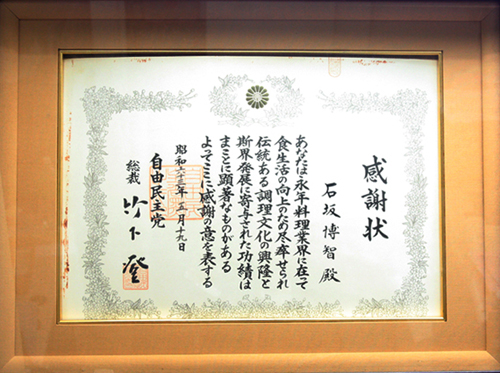 感謝状
石坂博智殿
あなたは永年料理業界に在て
食生活の向上のため尽卒せられ
伝統ある調理文化の興隆と
斯界発展に寄与された功績は
まことに顕著なものがある
よってここに感謝の意を表する
昭和六三年五月十九日
自由民主党
総裁 竹下登